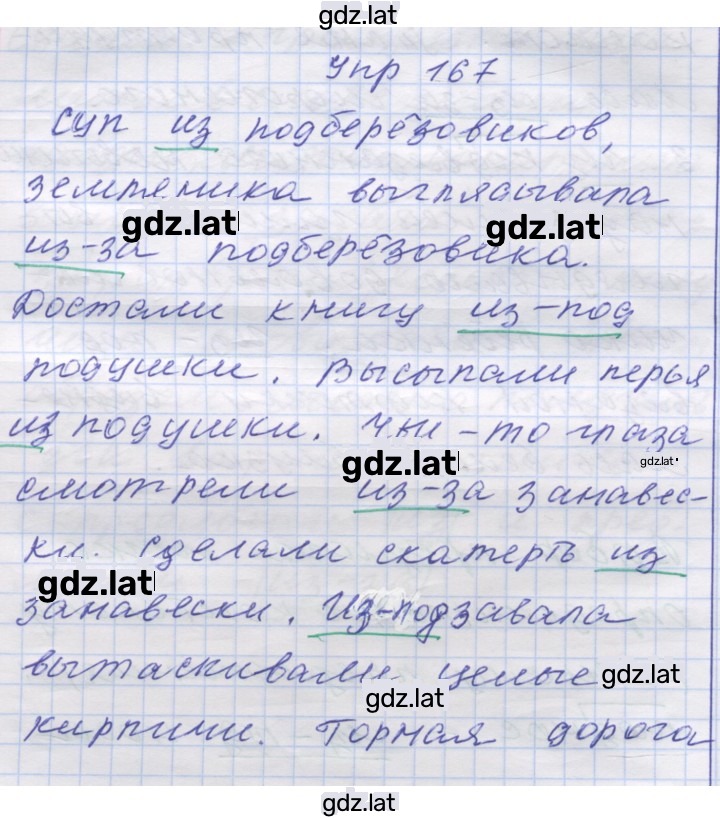 gdz.lat
Упр 167
Суп из подберёзовиков,
земляника выглядывала
gdz.lat gdz.lat
из-за подберёзовика.
Достали книгу из-под
подушки. Высыпали перья
из подушки. Чьи-то глаза
gdz.lat gdz.lat
смотрели из-за занавес-
ки. Сделали скатерть из
gdz.lat
занавески. Из-под завала
вытаскивали целые gdz.lat
gdz.lat
кирпичи. Горная дорога
gdz.lat